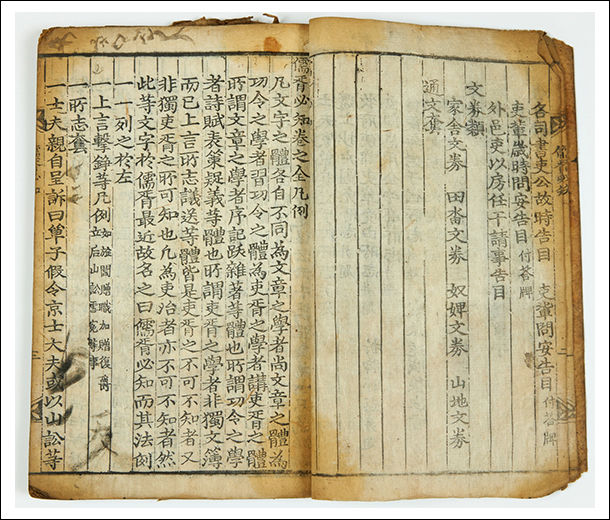 各司書吏公故時告目　吏輩問安告目 付答牌
吏輩歲時問安告目 付答牌
外邑吏以房任干請事告目
文券類
家舍文券　田畓文券　奴婢文券　山地文券
通文套
儒胥必知卷之全凡例
凡文字之體各自不同為文章之學者尚文章之體為
功令之學者習功令之體為吏胥之學者講吏胥之體
所謂文章之學者序記跋雜著等體也所謂功令之學
者詩賦表策疑義等體也所謂吏胥之學者非獨文簿
而已上言所志議送等體皆是吏胥之不可不知者又
非獨吏胥之所可知也凡為吏治者亦不可不知者然
此等文字於儒胥最近故名之曰儒胥必知而其法例
一一列之於左
一上言擊錚等凡例 如旌閭贈職加贈復爵
立后山訟寃等事
一所志套
一士夫親自呈訴曰單子假令京士大夫或以山訟等